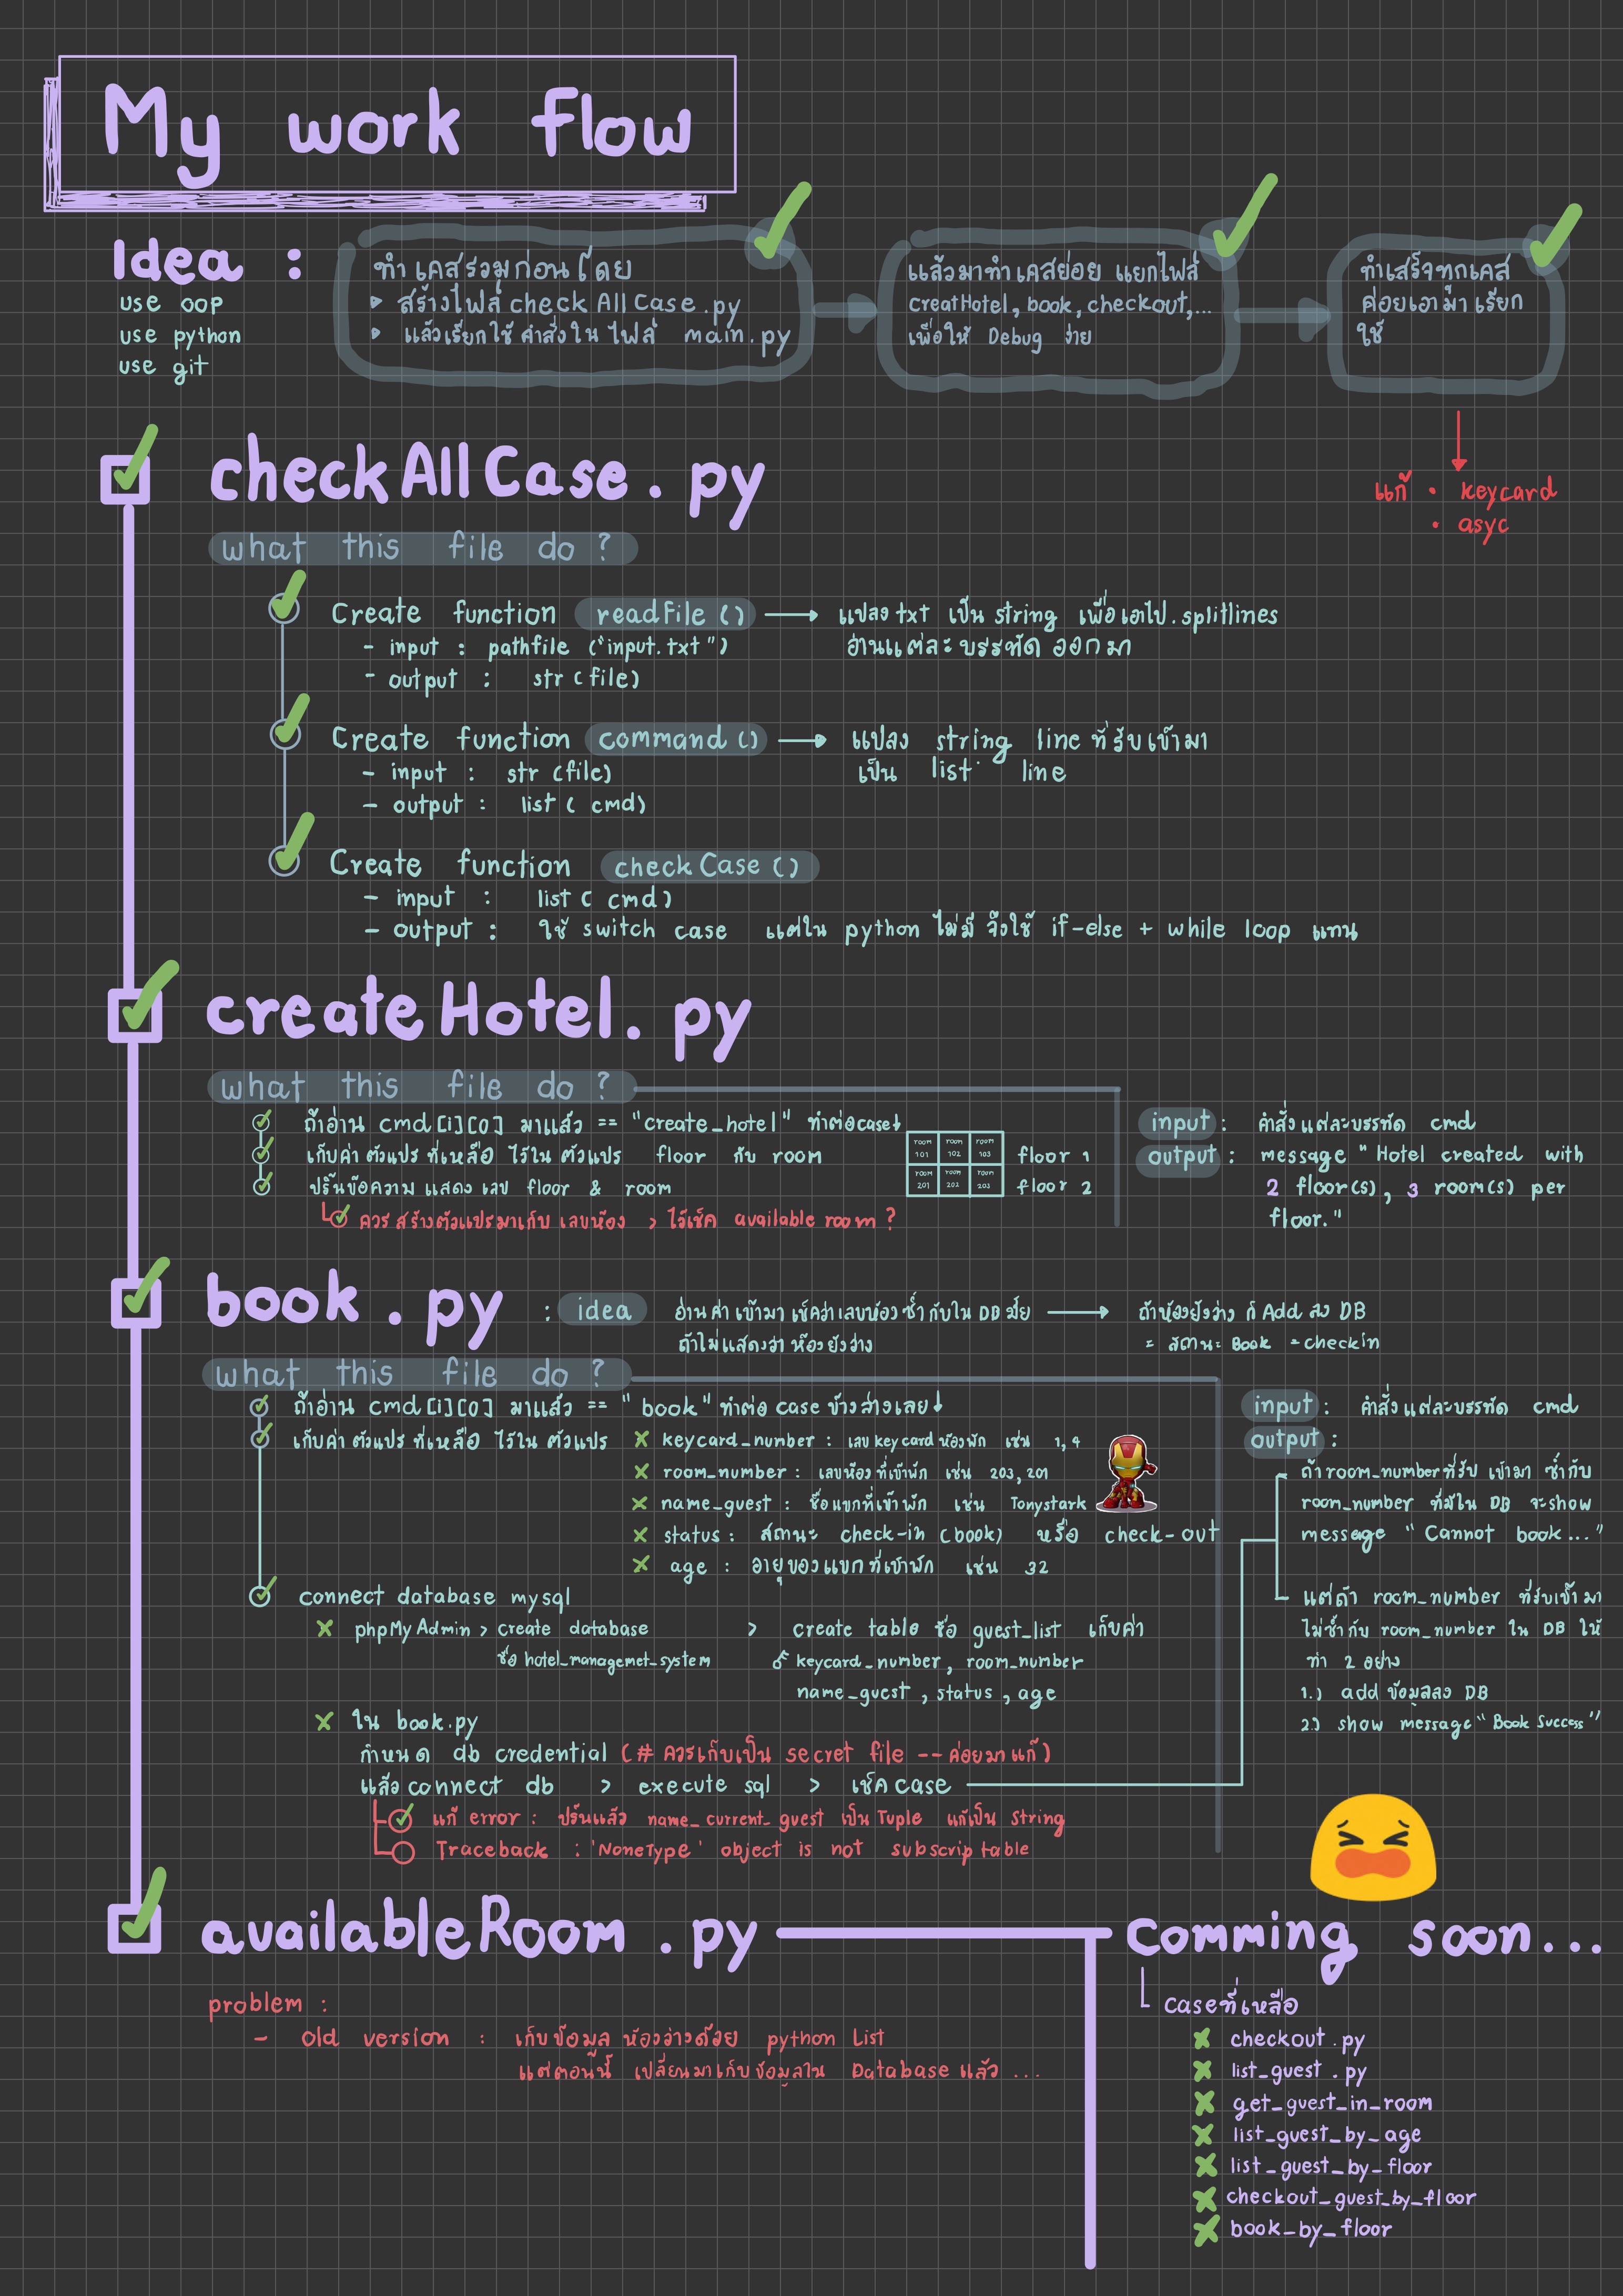 My work flow
Idea :
use oop
use python
use git
ทำเคสรวมก่อนโดย
▸ สร้างไฟล์ checkAllCase.py
▸ แล้วเรียกใช้คำสั่งในไฟล์ main.py
แล้วมาทำเคสย่อย แยกไฟล์
creatHotel, book, checkout,...
เพื่อให้ Debug ง่าย
ทำเสร็จทุกเคส
ค่อยเอามา เรียก
ใช้
แก้ • keycard
• asyc
checkAllCase.py
what this file do ?
Create function readFile () → แปลง txt เป็น string เพื่อเอาไป .splitlines
- input : pathfile ("input.txt") อ่านแต่ละบรรทัดออกมา
- output : str (file)
Create function command () → แปลง string line ที่รับเข้ามา
- input : str (file) เป็น list line
- output : list ( cmd)
Create function checkCase ()
- input : list ( cmd)
- output : ใช้ switch case แต่ใน python ไม่มี จึงใช้ if-else + while loop แทน
createHotel.py
what this file do ?
ถ้าอ่าน cmd[i][0] มาแล้ว == "create_hotel" ทำต่อcase↓
เก็บค่า ตัวแปร ที่เหลือ ไว้ใน ตัวแปร floor กับ room
ปริ้นข้อความ แสดง เลข floor & room
ควรสร้างตัวแปรมาเก็บ เลขห้อง > ไว้เช็ค available room ?
room 101 room 102 room 103 floor 1
room 201 room 202 room 203 floor 2
input : คำสั่งแต่ละบรรทัด cmd
output : message "Hotel created with
2 floor(s), 3 room(s) per
floor."
book.py : idea อ่านค่าเข้ามา เช็คว่าเลขห้อง ซ้ำกับใน DB มั้ย → ถ้าห้องยังว่าง ก็ Add ลง DB
ถ้าไม่แสดงว่าห้องยังว่าง = สถานะ Book = checkin
what this file do ?
ถ้าอ่าน cmd[i][0] มาแล้ว == "book" ทำต่อ case ข้างล่างเลย↓
เก็บค่า ตัวแปร ที่เหลือ ไว้ใน ตัวแปร
x keycard_number : เลข keycard ห้องพัก เช่น 1,4
x room_number : เลขห้องที่เข้าพัก เช่น 203,201
x name_guest : ชื่อแขกที่เข้าพัก เช่น Tonystark
x status : สถานะ check-in (book) หรือ check-out
x age : อายุของแขกที่เข้าพัก เช่น 32
connect database mysql
x phpMyAdmin > create database > create table ชื่อ guest_list เก็บค่า
ชื่อ hotel_managemet_system keycard_number, room_number
name_guest, status, age
x ใน book.py
กำหนด db credential (# ควรเก็บเป็น secret file -- ค่อยมาแก้)
แล้ว connect db > execute sql > เช็ค case
แก้ error : ปริ้นแล้ว name_current_guest เป็น Tuple แก้เป็น String
Traceback : 'NoneType' object is not subscriptable
input : คำสั่งแต่ละบรรทัด cmd
output :
ถ้า room_numberที่รับ เข้ามา ซ้ำกับ
room_number ที่มีใน DB จะshow
message "Cannot book..."
แต่ถ้า room_number ที่รับเข้ามา
ไม่ซ้ำกับ room_number ใน DB ให้
ทำ 2 อย่าง
1.) add ข้อมูลลง DB
2.) show message "Book Success"
availableRoom.py
problem :
- Old version : เก็บข้อมูล ห้องว่างด้วย python List
แต่ตอนนี้ เปลี่ยนมาเก็บข้อมูลใน Database แล้ว ...
Comming soon...
caseที่เหลือ
x checkout.py
x list_guest.py
x get_guest_in_room
x list_guest_by_age
x list_guest_by_floor
x checkout_guest_by_floor
x book_by_floor